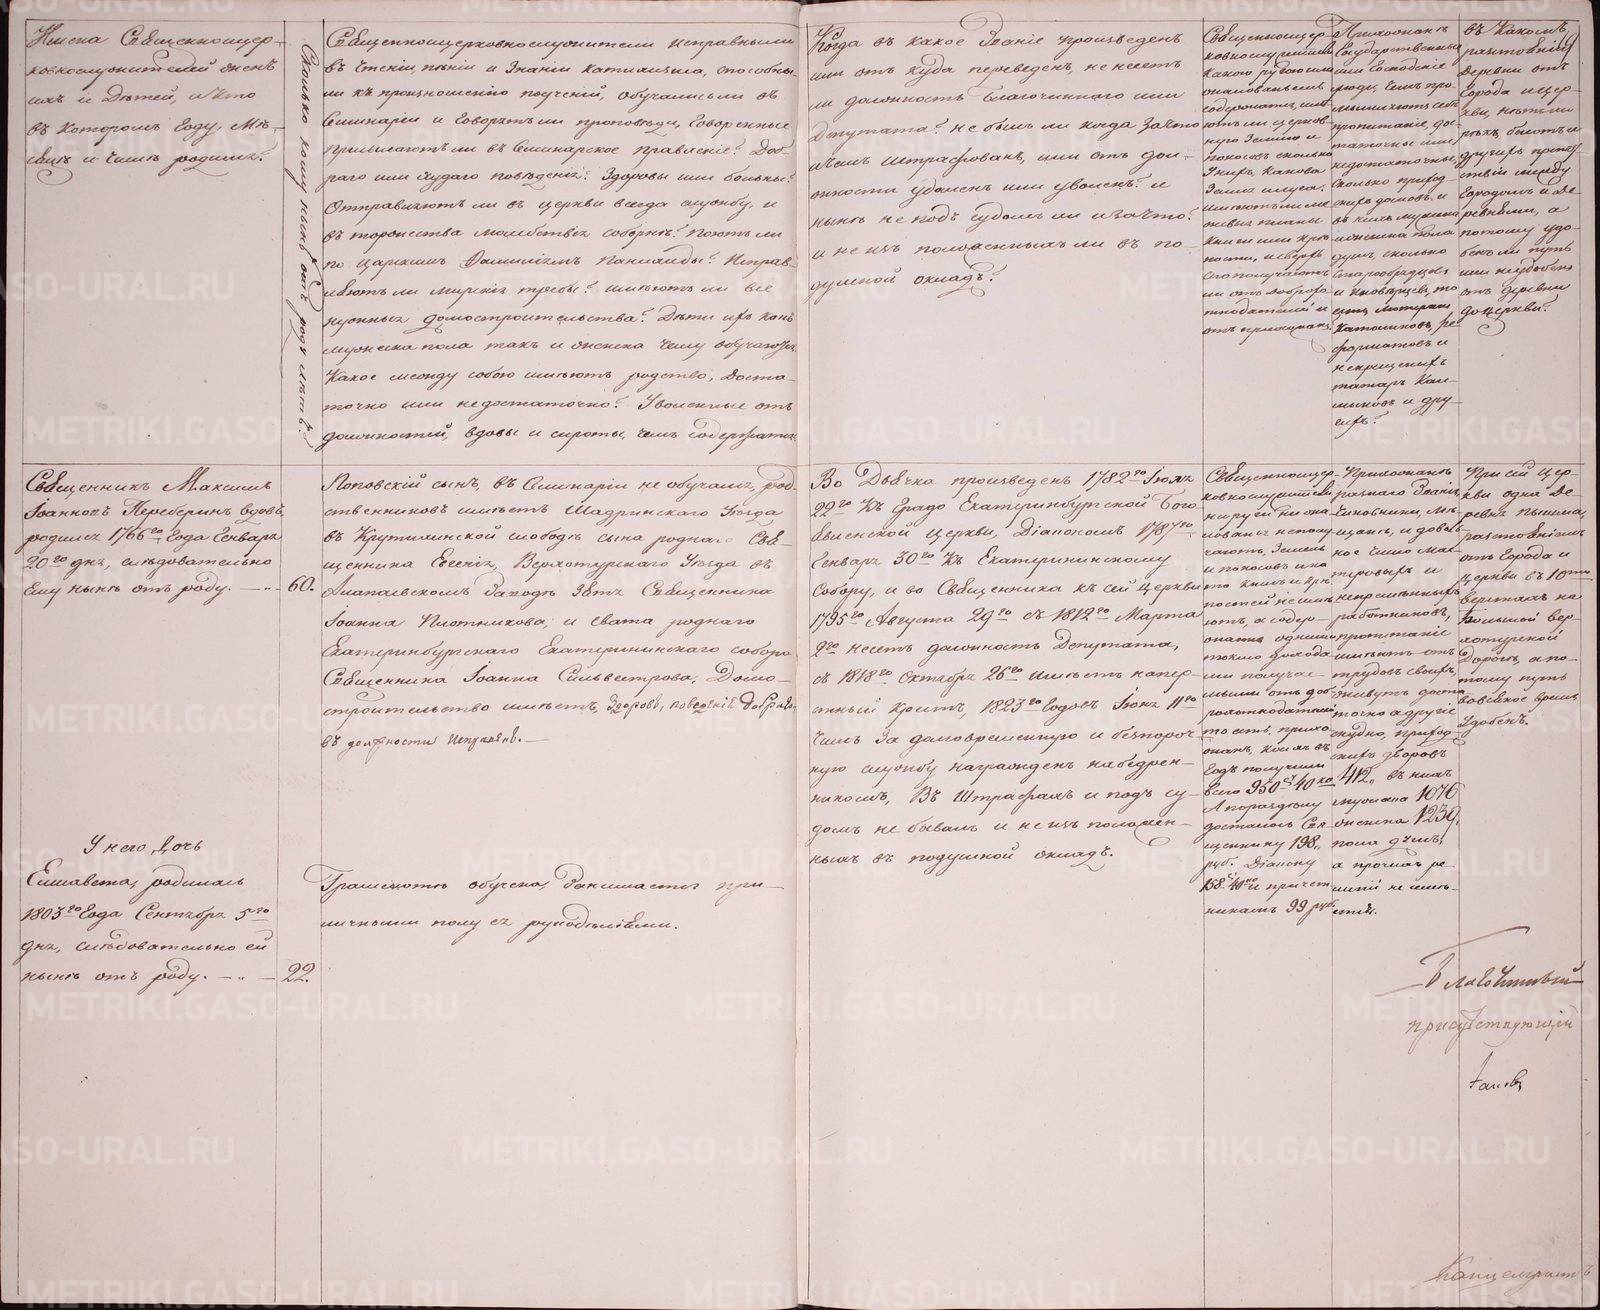 Имена Священноцер-
ковнослужителей женъ
ихъ и Дѣтей, и кто
въ которомъ Году, Мѣ-
сяцѣ и числѣ родился?
Сколько кому нынѣ отъ роду лѣтъ?
Священноцерковнослужители исправными
въ чтеніи, пѣніи и знаніи катихизиса, способны-
ли къ произношенію поученій, обучались ли въ
Семинаріи и говорятъ ли проповѣди, говоренные
присылаютъ ли въ Семинарское правленіе? Доб-
раго или худаго поведенія? Здоровы или больны?
Отправляютъ ли въ церкви всегда службу, и
въ торжества молебствія соборнѣ? Поютъ ли
по царскимъ Фамиліямъ Панихиды? Исправ-
ляютъ ли мирскія требы? имѣютъ ли все
нужныя домостроительства? Дѣти ихъ какъ
мужеска пола такъ и женска чему обучаются
Какое между собою имѣютъ родство, Доста-
точно или недостаточно? Уволенные отъ
должностей, вдовы и сироты, чемъ содержатся
Когда въ какое званіе произведенъ
или отъ куда переведенъ, не несетъ
ли должность Благочиннаго или
Депутата? не былъ ли когда за что
и чемъ штрафованъ, или отъ дол-
жности удаленъ или уволенъ? и
нынѣ не подъ судомъ ли и за что?
и не изъ положенныхъ ли въ по-
душной окладъ?
Священноцер-
ковнослужители
какою ругою или
жалованьемъ
содержатся, имѣ-
ютъ ли церков-
ную землю и
покосовъ сколько
и какова
земля
Имѣютъ ли
планы
книги или крѣ-
пости, и сверхъ
сего получаютъ
ли отъ доброхо-
тнодателей и
отъ прихожанъ
Прихожанъ
Государственные
или Господскіе
люди, чемъ про-
мышляютъ себѣ
пропитаніе, до-
статочны или
недостаточны,
сколько приход-
скихъ домовъ, и
въ нихъ мужска
и женска пола
душъ, сколько
старообрядцевъ
и иновѣрцевъ, то
есть лютеранъ
Католиковъ, ре-
форматовъ и
некрещеныхъ
татаръ Кал-
мыковъ и дру-
гихъ?
въ какомъ
разстояніи
Деревни отъ
Города и цер-
кви, нѣтъ ли
рѣкъ, болотъ и
другихъ препят-
ствій между
Городомъ и де-
ревнями, а
потому удо-
бенъ ли путь
или неудобенъ
отъ деревни
до церкви?
Священникъ Максимъ
Іоанновъ Переберинъ вдовъ,
родился 1766го Года Генваря
20го дня, слѣдовательно
Ему нынѣ отъ роду. — " — 60.
Поповскій сынъ, въ Семинаріи не обучался, род-
ственниковъ имѣетъ Шадринскаго Уѣзда
въ Крутихинской слободѣ сына роднаго Свя-
щенника Евгенія, Верхотурскаго Уѣзда въ
Алапаевскомъ Заводѣ Зятя Священника
Іоанна Плотникова, и свата роднаго
Екатеринбургскаго Екатерининскаго собора
Священника Іоанна Сильвестрова, Домо-
строительство имѣетъ, Здоровъ, поведенія добраго
въ должности исправенъ. —
Во Дьячка произведенъ 1782го Іюля
22го Къ Градо Екатеринбургской Бого-
явленской церкви, Діакономъ 1787го
Генваря 30го Къ Екатерининскому
Собору, и во Священника къ сей церкви
1795го Августа 29го съ 1812го Марта
2го несетъ должность Депутата,
съ 1818го Октября 26го имѣетъ напер-
сный Крестъ, 1823го Годовъ Іюня 11го
числа За долговременную и безпороч-
ную службу награжденъ набедрен-
никомъ, Въ Штрафахъ и подъ су-
домъ не бывалъ и не изъ положен-
ныхъ въ подушной окладъ.
Священноцер-
ковнослужители
ни руги ни жа-
лованья не полу-
чаютъ, Земель
и покосовъ и на
то книгъ и крѣ-
постей не имѣ-
ютъ, а содер-
жатся однимъ
токмо дохода-
ми получае-
мыми отъ доб-
рохотнодателей
то есть, прихо-
жанъ, коихъ въ
Годъ получили
всего 950 р. 40 ко
А по раздѣлу
досталось Свя-
щеннику 198,,
руб. Діакону
158 р. 40 ко и причет-
никамъ 99 руб.
Прихожанъ
разнаго Званія,
Чиновники, Мѣ-
щанъ, и доволь-
ное число мас-
теровыхъ и
непремѣнныхъ
работниковъ,
пропитаніе
имѣютъ отъ
трудовъ своихъ,
живутъ доста-
точно а другіе
скудно, приход-
скихъ дворовъ
412, въ нихъ
мужска 1076
женска 1239,
пола душъ,
а прочихъ ре-
лигій не имѣ-
ется.
При сей цер-
кви одна Де-
ревня Пышма,
разстояніемъ
отъ Города и
церкви въ 10ти
верстахъ на
Большой вер-
хотурской
Дорогѣ, а по-
тому путь
во всякое время
Удобенъ.
У него дочь
Елисавета, родилась
1803го Года Сентября 5го
дня, слѣдовательно ей
нынѣ отъ роду. — " — 22.
Грамотѣ обучена, Занимается при-
личными полу ея рукодѣліями.
Благочинный
присутствующій
Канцеляристъ